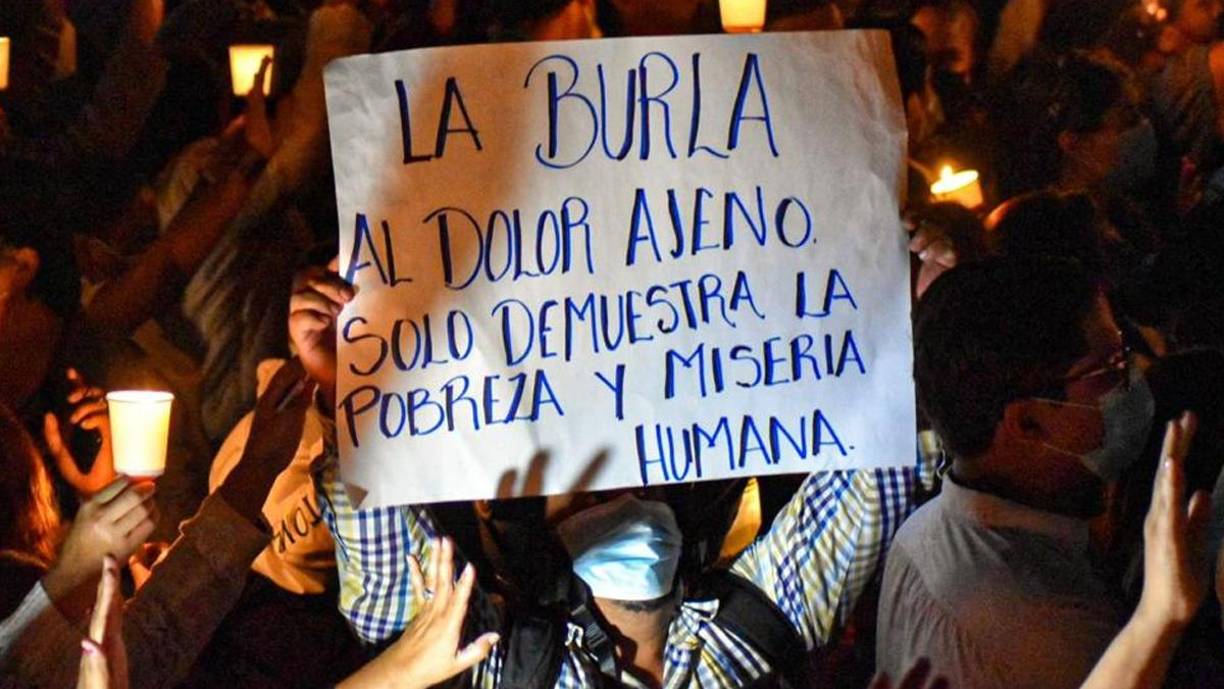 LA BURLA
AL DOLOR AJENO.
SOLO DEMUESTRA LA
POBREZA Y MISERIA
HUMANA.